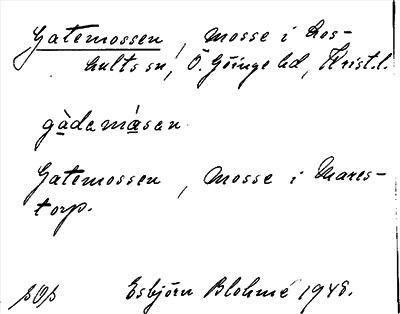 Gatemossen, mosse i Los-
hults sn, Ö. Göinge hd, Krist. l.
gàdamásan
Gatemossen, mosse i Mares-
torp.
Esbjörn Blohmé 1948.